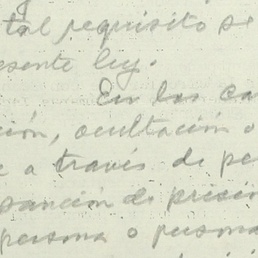 tal requisito se
esente ley.
En los ca
ción, ocultación o
e a través de pe
sanción de prisió
persona o persona